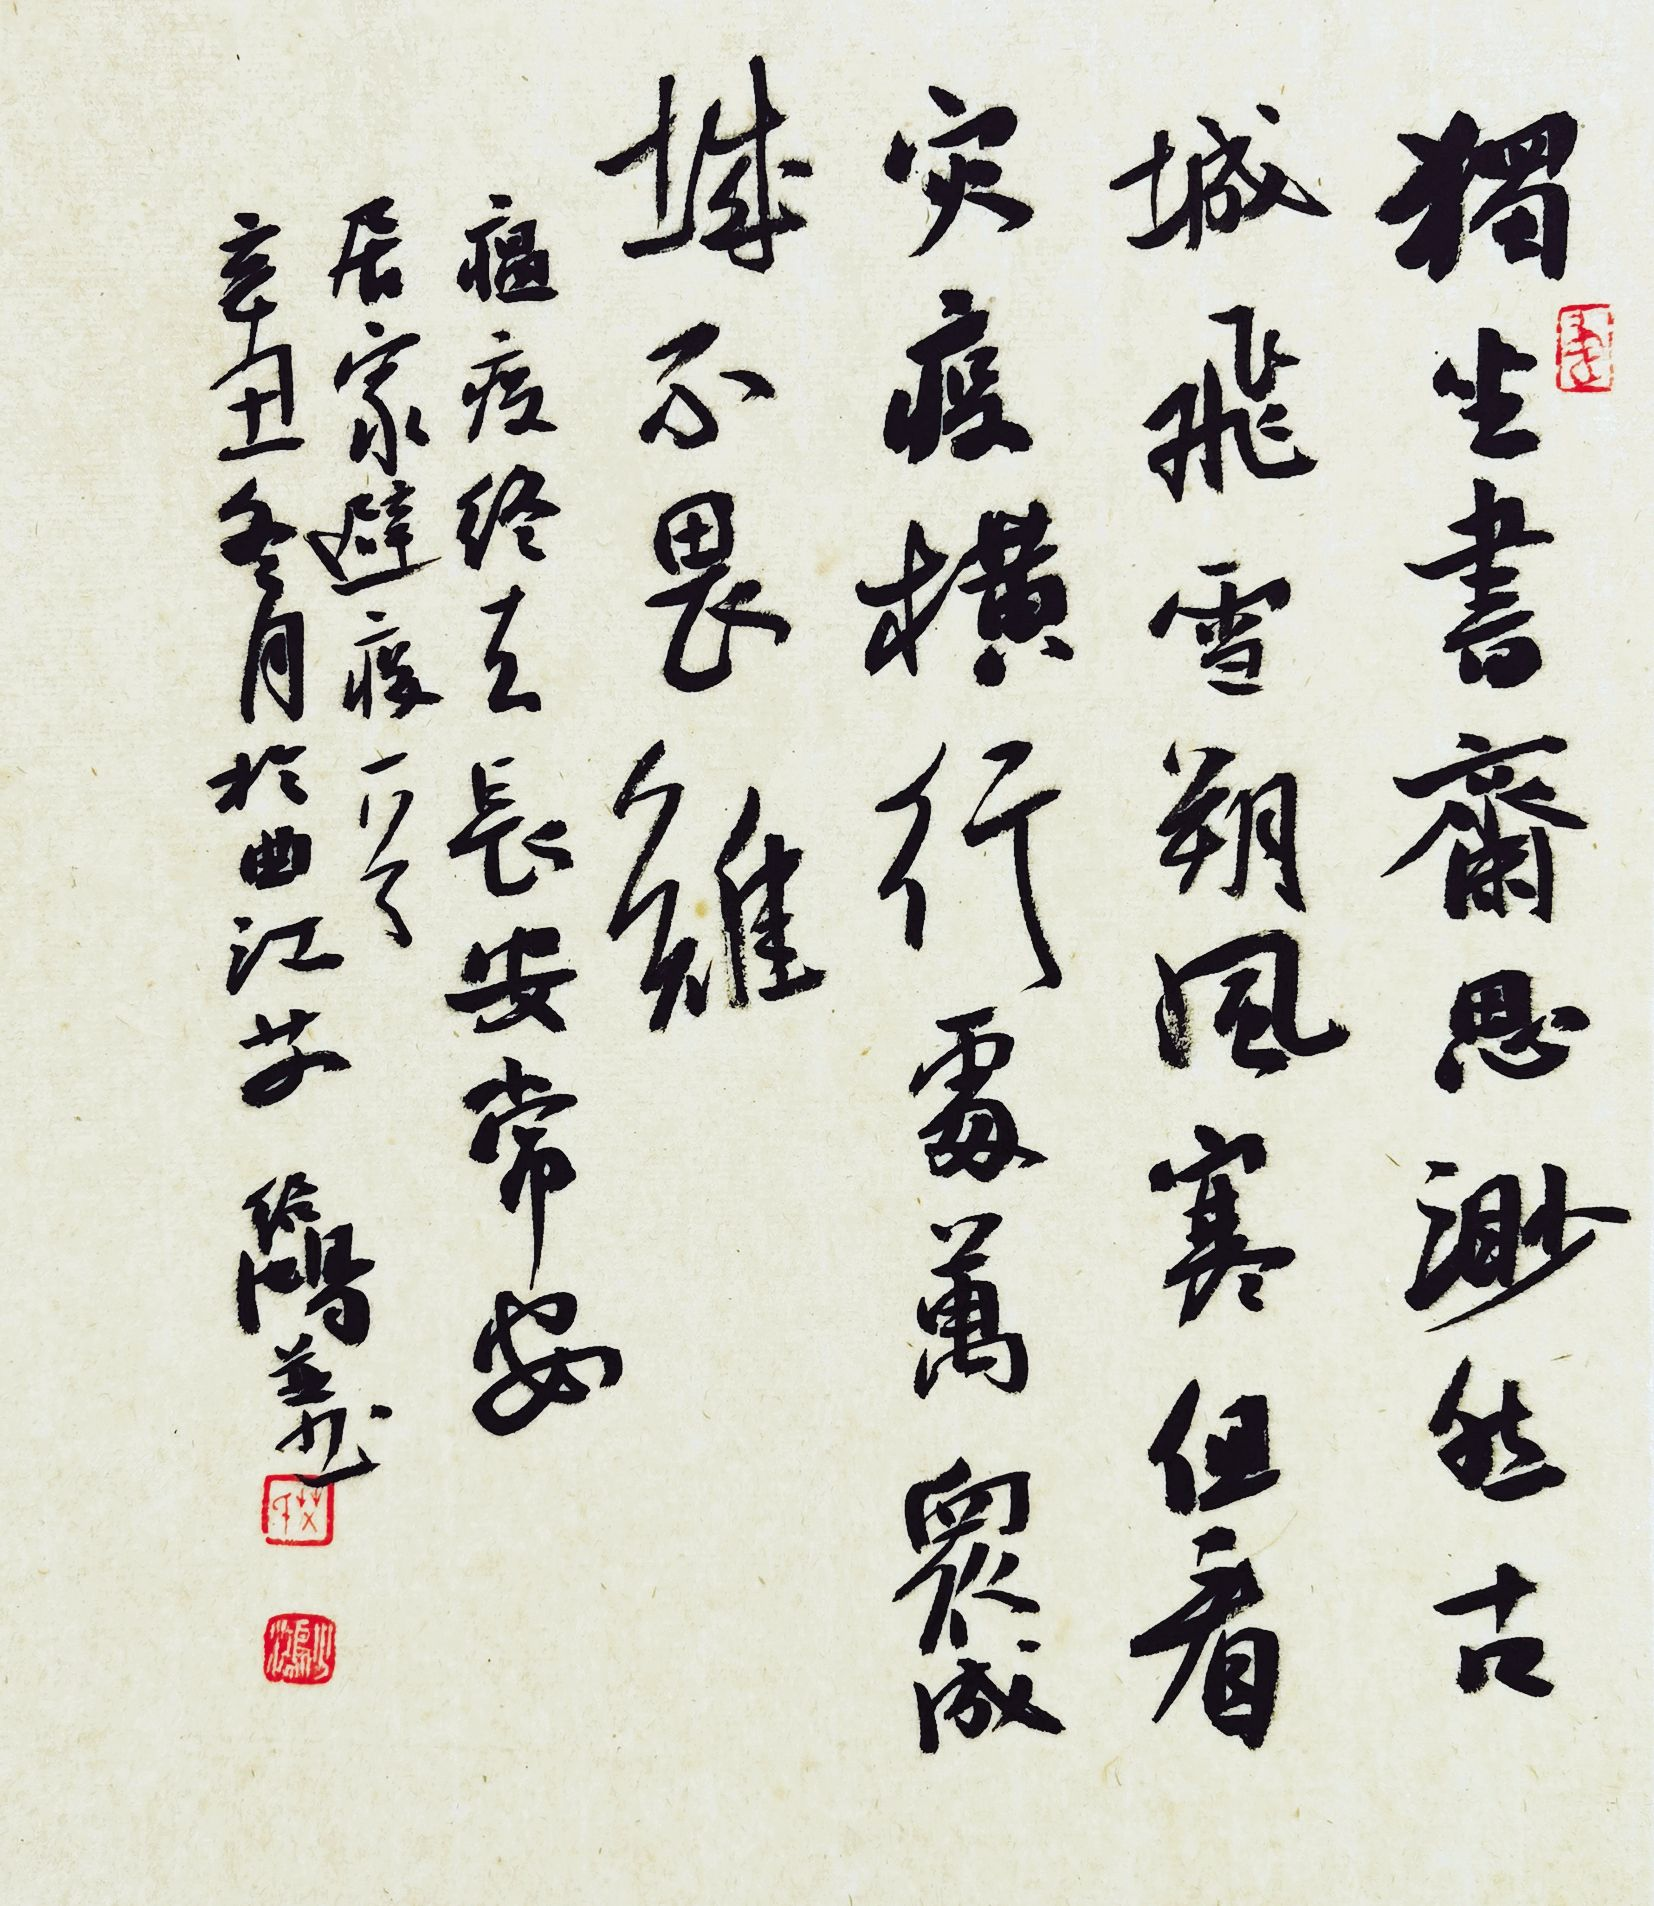 獨坐書齋思渺然古
城飛雪朔風寒但看
灾疫橫行處萬眾成
城不畏難
瘟疫終去長安常安
居家避疫一月了
辛丑冬月於曲江
鴻